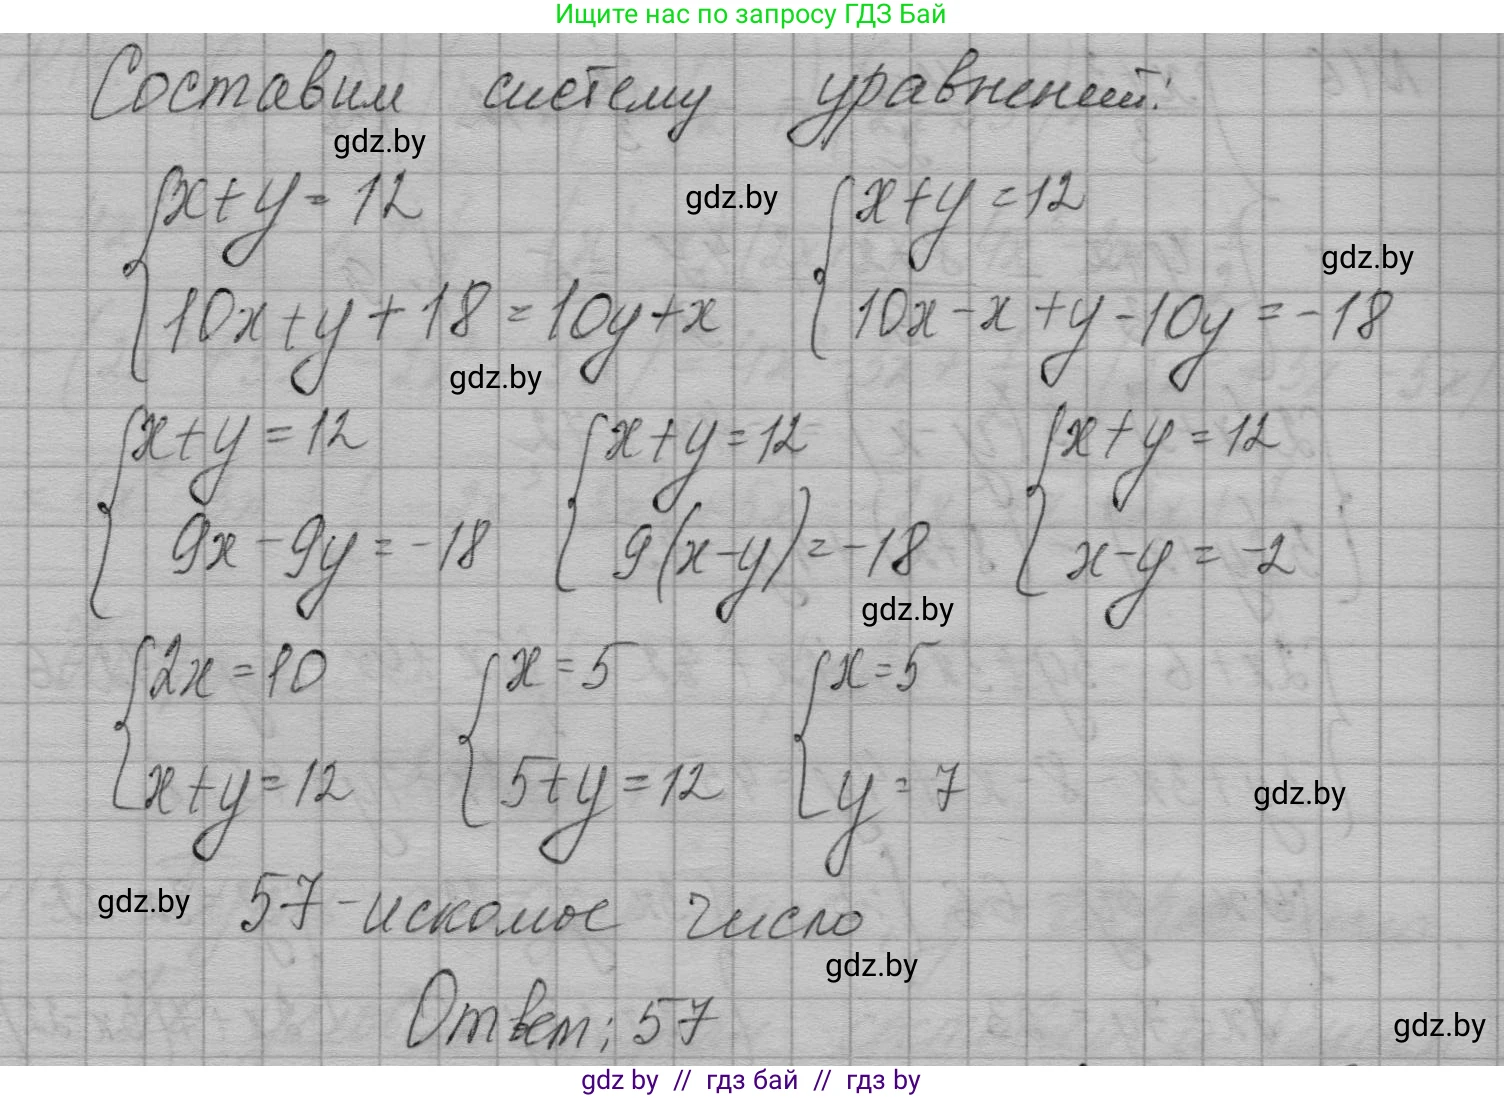 Ищите нас по запросу ГДЗ Бай
Составим систему уравнений:
gdz.by
x+y=12 gdz.by x+y=12
gdz.by
10x+y+18=10y+x 10x-x+y-10y=-18
gdz.by
x+y=12 x+y=12 x+y=12
9x-9y=-18 9(x-y)=-18 x-y=-2
gdz.by
2x=10 x=5 x=5
x+y=12 5+y=12 y=7 gdz.by
gdz.by 57-искомое число
gdz.by
Ответ: 57 gdz.by
gdz by // гдз бай // гдз by